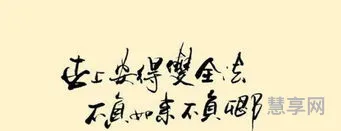 世上安得雙全法
不負如来不負卿
慧享网